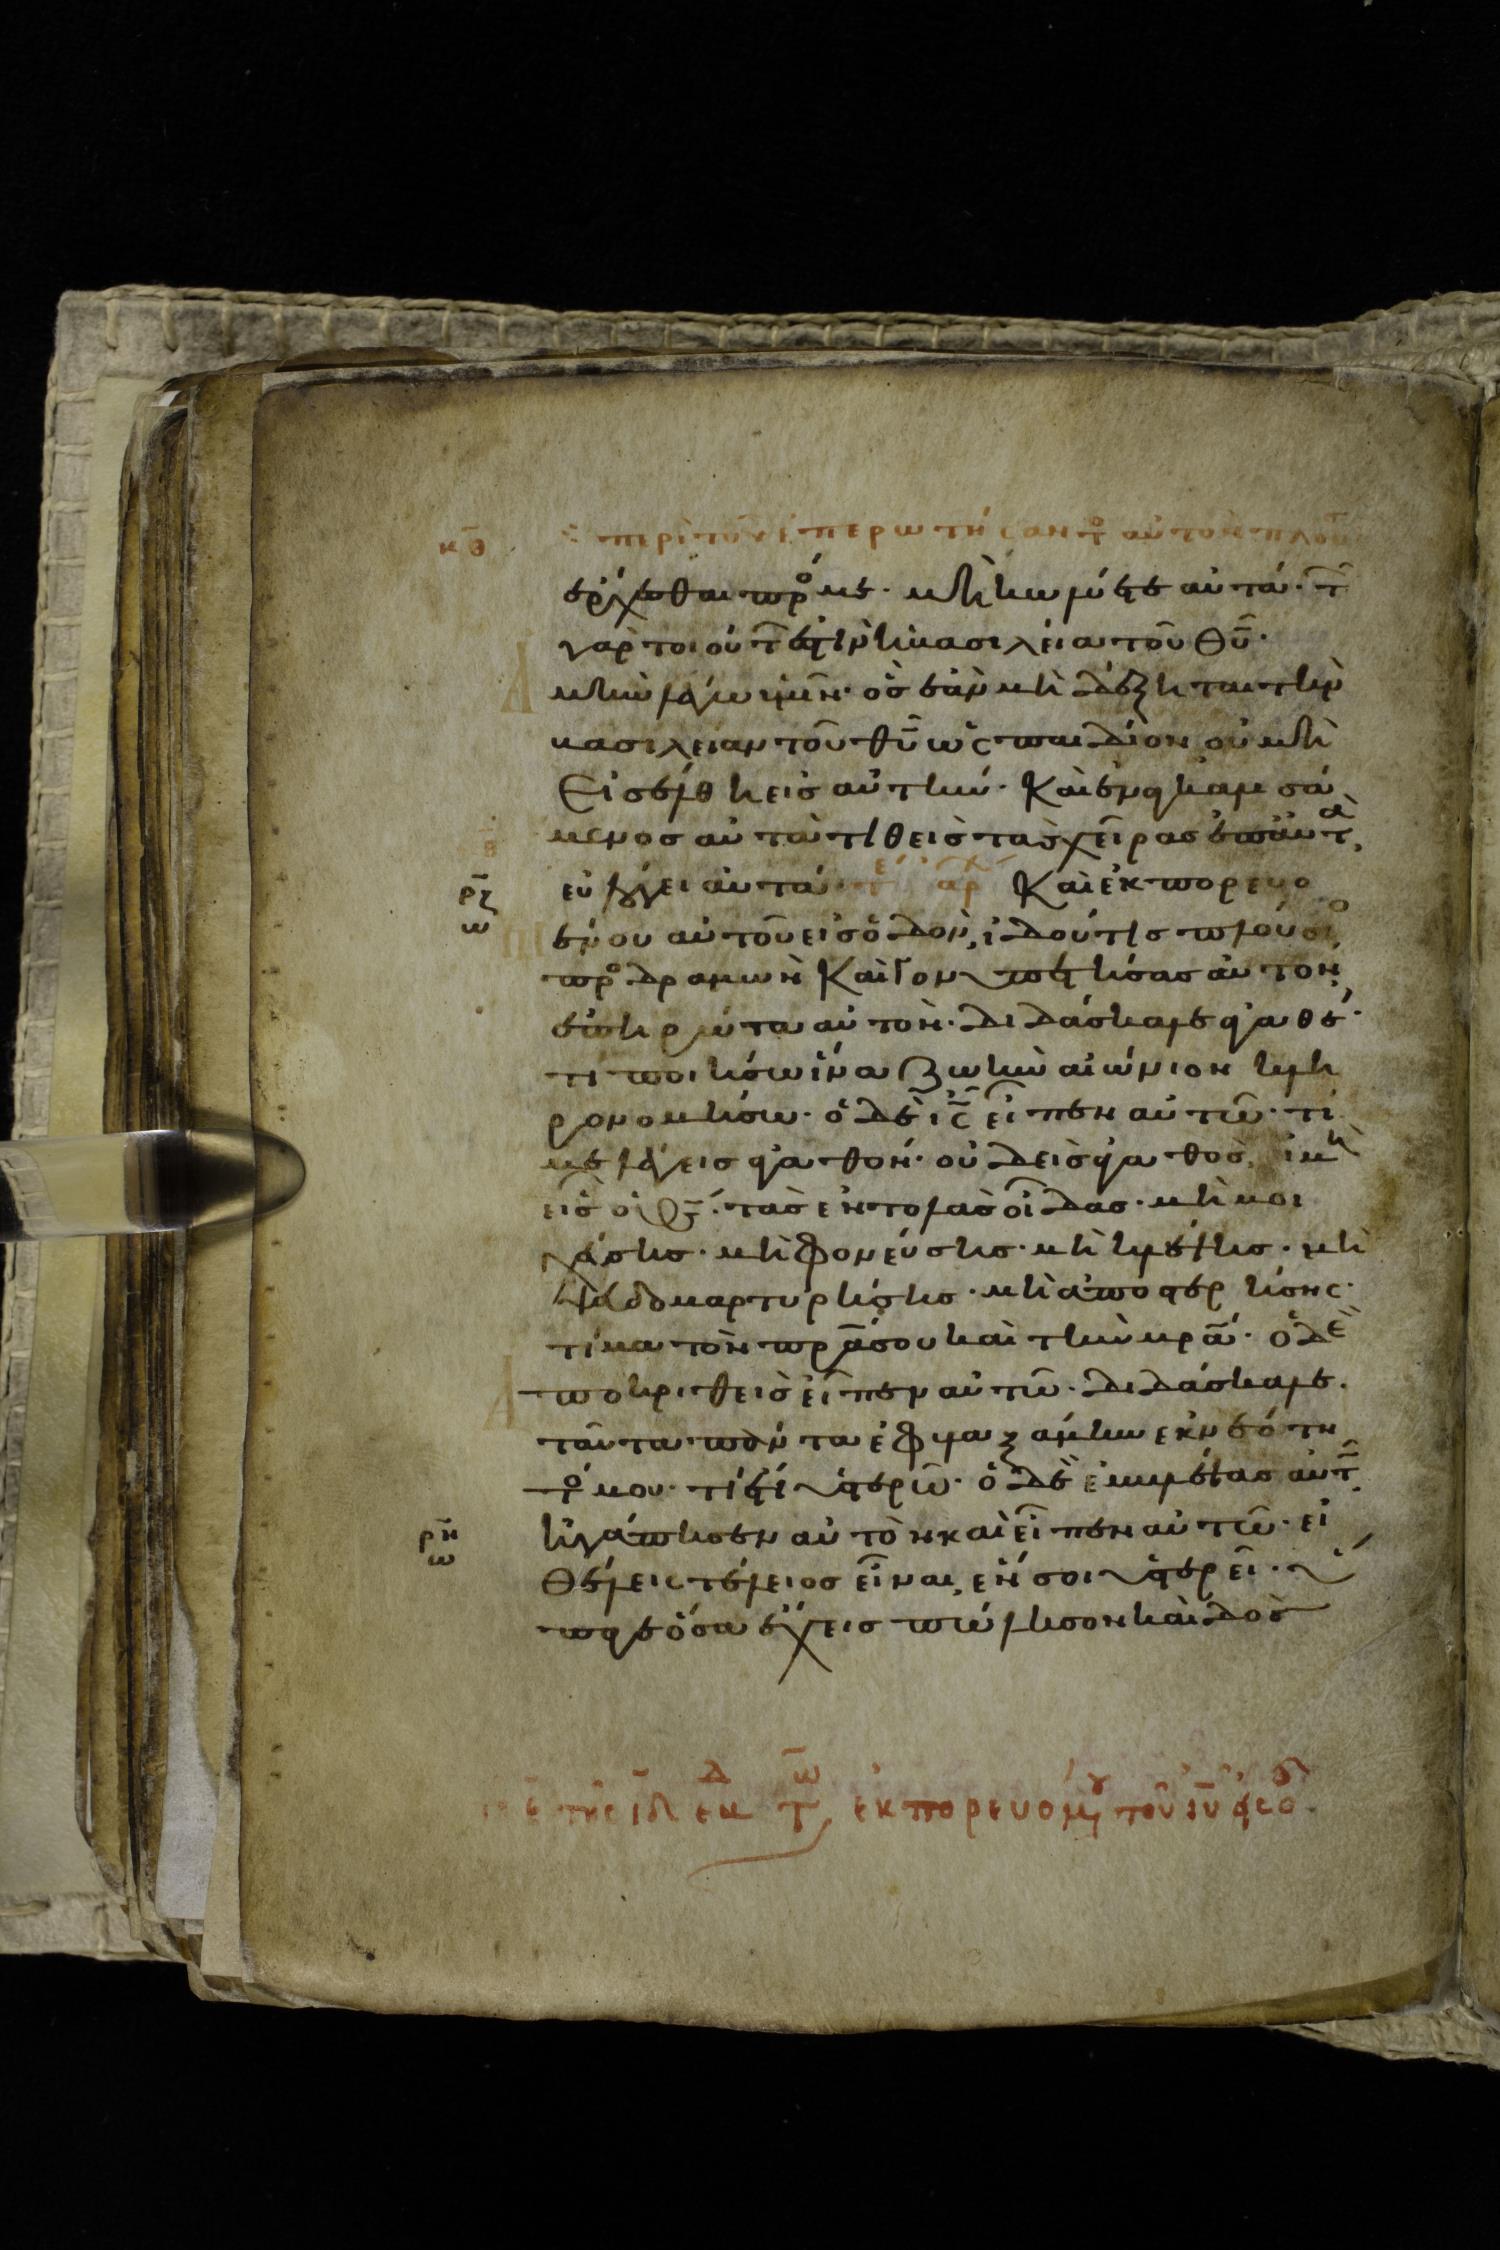 κθ περὶ τοῦ ἐπερωτήσαντο αὐτὸν πλου
ἔρχεσθαι πρός με· μὴ κωλύετε αὐτά· τῶν
γὰρ τοιούτων ἐστὶν ἡ βασιλεία τοῦ θῦ·
ἀμὴν λέγω ὑμῖν· ὃς ἐὰν μὴ δέξηται τὴν
βασιλείαν τοῦ θῦ ὡς παιδίον οὐ μὴ
εἰσέλθη εἰς αὐτήν· Καὶ ἐναγκαλισά
μενος αὐτὰ τιθεὶς τὰς χεῖρας ἐπ' αὐτὰ,
εὐλόγει αὐτά· τε αρχ Καὶ ἐκπορευο
ρζ
ω
μένου αὐτοῦ εἰς ὁδὸν, ἰδού τις πλούσιος
προσδραμὼν Καὶ γονυπετήσας αὐτὸν,
ἐπηρώτα αὐτόν· διδάσκαλε ἀγαθέ·
τί ποιήσω ἵνα ζωὴν αἰώνιον κλη
ρονομήσω· ὁ δὲ ις εἶπεν αὐτῶ· τί
με λέγεις ἀγαθόν· οὐδεὶς ἀγαθὸς, εἰ μὴ
εἷς ὁ θς· τὰς ἐντολὰς οἶδας· μὴ μοι
χεύσης· μὴ φονεύσης· μὴ κλέψης· μὴ
ψευδομαρτυρήσης· μὴ ἀποστερήσης·
τίμα τὸν πρα σου καὶ τὴν μρα· ὁ δὲ
ἀποκριθεὶς εἶπεν αὐτῶ· διδάσκαλε.
ταῦτα πάντα ἐφυλαξάμην ἐκ νεότη
τός μου· τί ἔτι ὑστερῶ· ὁ δὲ ἐμβλέψας αὐτῶ,
ρη
ω
ἠγάπησεν αὐτὸν καὶ εἶπεν αὐτῶ· εἰ
θέλεις τέλειος εἶναι, ἕν σοι ὑστερεῖ· ὕ
παγε ὅσα ἔχεις πώλησον καὶ δὸς
τῆς ιδ ἐκπορευομένου τοῦ ιυ